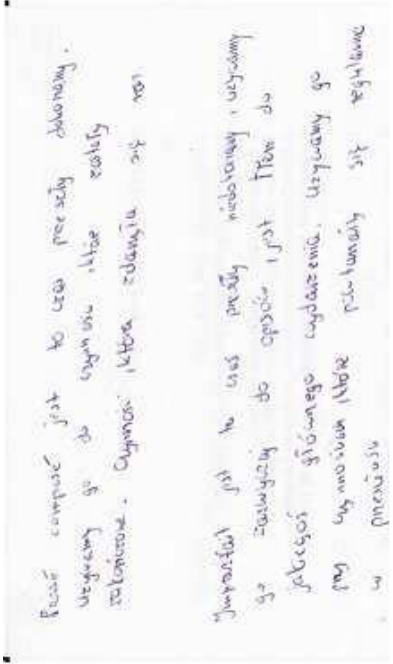 Passé composé jest to czas przeszły dokonany.
Używamy go do czynności, które zostały
zakończone. Czynność, która zdarzyła się raz.
Imparfait jest to czas przeszły niedokonany, używamy
go zazwyczaj do opisów, jest tłem do
jakiegoś głównego wydarzenia. Używamy go
przy czynnościach które powtarzały się regularnie
w przeszłości